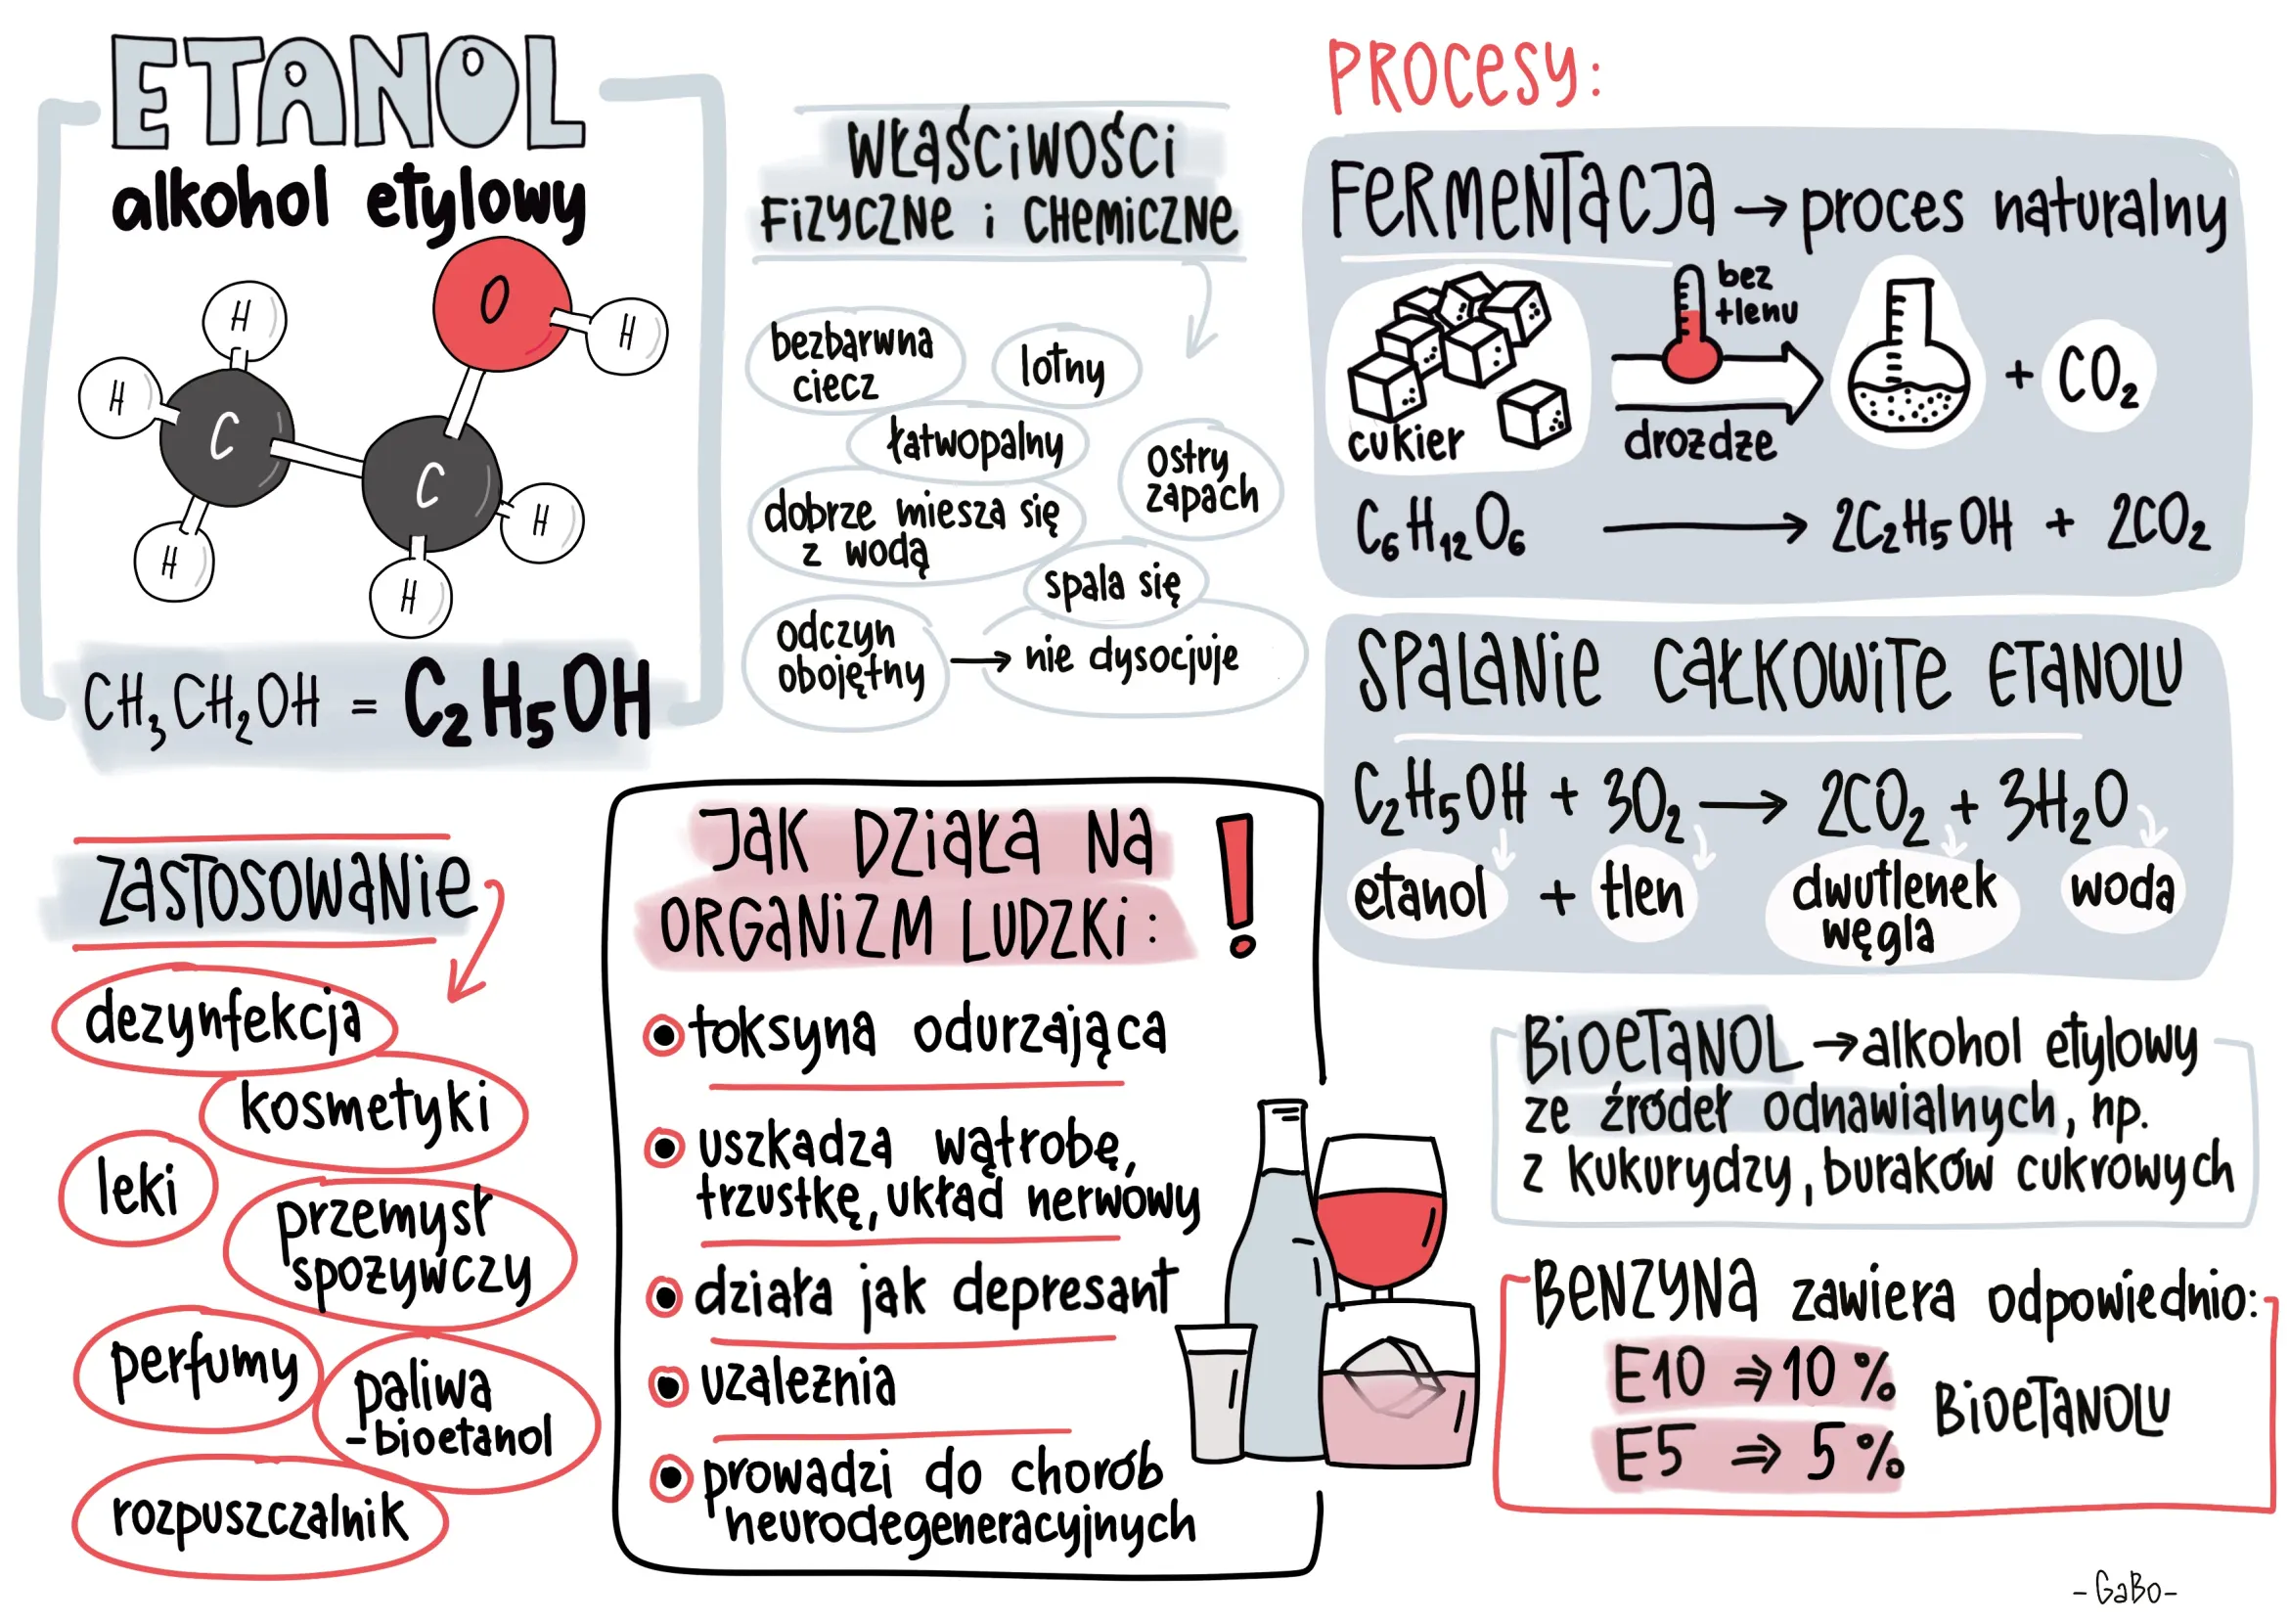 ETANOL
alkohol etylowy
O
H
H
H
C
C
H
H
H
CH₃CH₂OH = C₂H₅OH
WŁAŚCIWOŚCI
FIZYCZNE i CHEMICZNE
bezbarwna
ciecz
lotny
łatwopalny
ostry
zapach
dobrze miesza się
z wodą
spala się
odczyn
obojętny → nie dysocjuje
PROCESY:
FERMENTACJA → proces naturalny
bez
tlenu
cukier
drożdże
+ CO₂
C₆H₁₂O₆ → 2C₂H₅OH + 2CO₂
SPALANIE CAŁKOWITE ETANOLU
C₂H₅OH + 3O₂ → 2CO₂ + 3H₂O
etanol + tlen dwutlenek woda
węgla
ZASTOSOWANIE
dezynfekcja
kosmetyki
leki
przemysł
spożywczy
perfumy
paliwa
-bioetanol
rozpuszczalnik
JAK DZIAŁA NA
ORGANIZM LUDZKI: !
toksyna odurzająca
uszkadza wątrobę,
trzustkę, układ nerwowy
działa jak depresant
uzależnia
prowadzi do chorób
neurodegeneracyjnych
BIOETANOL → alkohol etylowy
ze źródeł odnawialnych, np.
z kukurydzy, buraków cukrowych
BENZYNA zawiera odpowiednio:
E10 ⇒ 10 %
BIOETANOLU
E5 ⇒ 5 %
-GaBo-